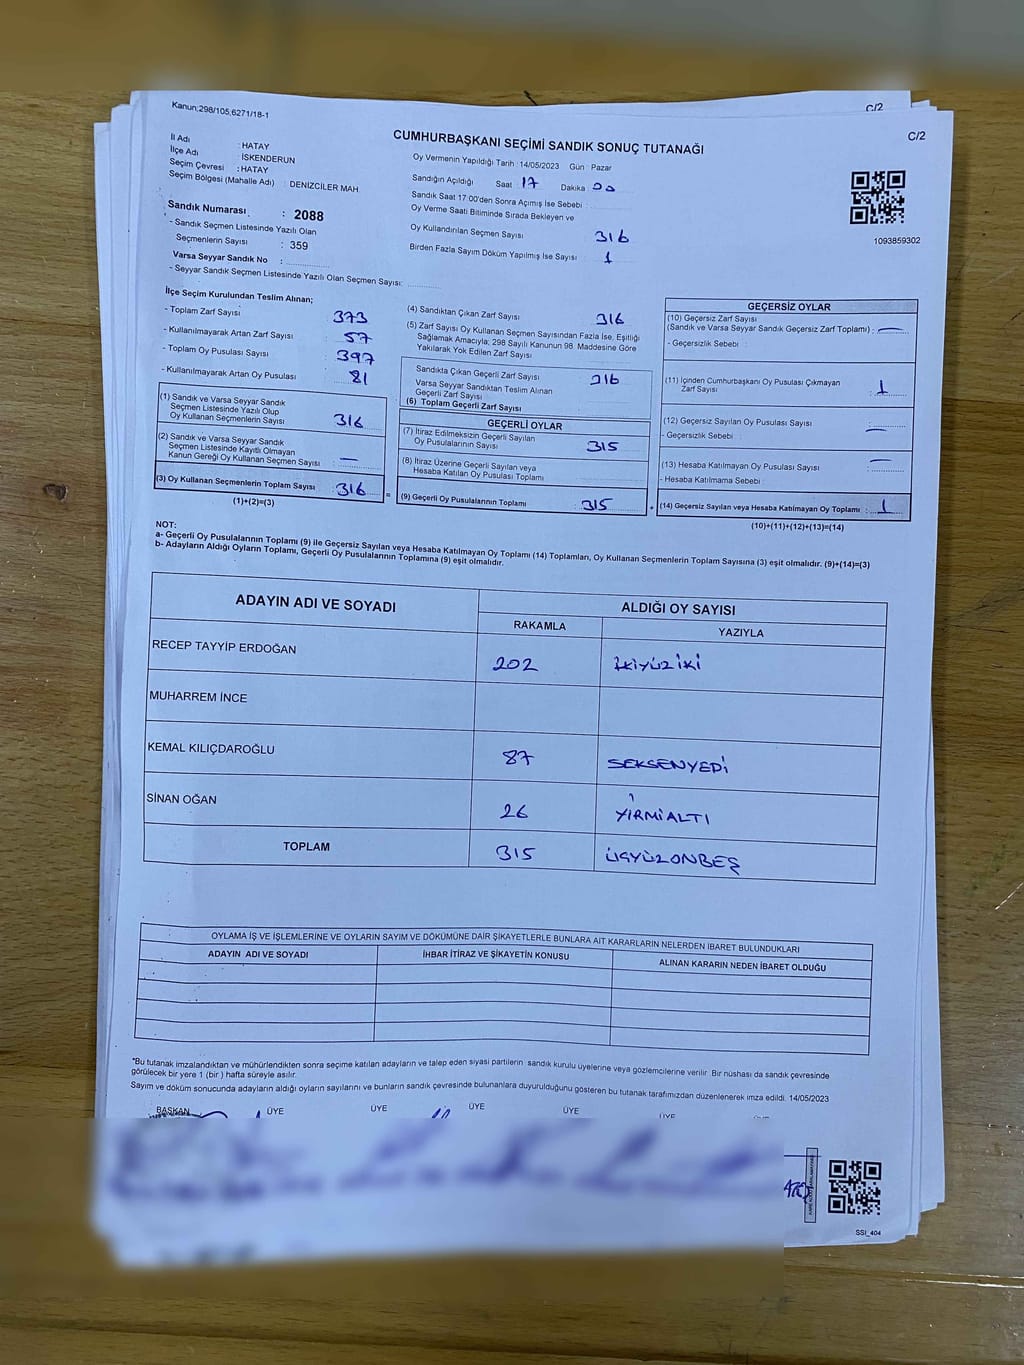 Kanun;298/105,6271/18-1
C/2
C/2
CUMHURBAŞKANI SEÇİMİ SANDIK SONUÇ TUTANAĞI
İl Adı : HATAY
İlçe Adı İSKENDERUN
Seçim Çevresi : HATAY
Seçim Bölgesi (Mahalle Adı) : DENİZCİLER MAH.
Sandık Numarası : 2088
- Sandık Seçmen Listesinde Yazılı Olan
Seçmenlerin Sayısı : 359
Varsa Seyyar Sandık No :
- Seyyar Sandık Seçmen Listesinde Yazılı Olan Seçmen Sayısı:
Oy Vermenin Yapıldığı Tarih : 14/05/2023 Gün : Pazar
Sandığın Açıldığı Saat 17 Dakika 00
Sandık Saat 17:00'den Sonra Açımış İse Sebebi :
Oy Verme Saati Bitiminde Sırada Bekleyen ve
Oy Kullandırılan Seçmen Sayısı 316
Birden Fazla Sayım Döküm Yapılmış İse Sayısı 1
1093859302
İlçe Seçim Kurulundan Teslim Alınan;
- Toplam Zarf Sayısı 373
- Kullanılmayarak Artan Zarf Sayısı 57
- Toplam Oy Pusulası Sayısı 397
- Kullanılmayarak Artan Oy Pusulası 81
(1) Sandık ve Varsa Seyyar Sandık
Seçmen Listesinde Yazılı Olup
Oy Kullanan Seçmenlerin Sayısı : 316
(2) Sandık ve Varsa Seyyar Sandık
Seçmen Listesinde Kayıtlı Olmayan
Kanun Gereği Oy Kullanan Seçmen Sayısı : —
(3) Oy Kullanan Seçmenlerin Toplam Sayısı : 316
(1)+(2)=(3)
=
(4) Sandıktan Çıkan Zarf Sayısı 316
(5) Zarf Sayısı Oy Kullanan Seçmen Sayısından Fazla İse, Eşitliği
Sağlamak Amacıyla; 298 Sayılı Kanunun 98. Maddesine Göre
Yakılarak Yok Edilen Zarf Sayısı
Sandıkta Çıkan Geçerli Zarf Sayısı 316
Varsa Seyyar Sandıktan Teslim Alınan
Geçerli Zarf Sayısı
(6) Toplam Geçerli Zarf Sayısı
GEÇERLİ OYLAR
(7) İtiraz Edilmeksizin Geçerli Sayılan
Oy Pusulalarının Sayısı : 315
(8) İtiraz Üzerine Geçerli Sayılan veya
Hesaba Katılan Oy Pusulası Toplamı
(9) Geçerli Oy Pusulalarının Toplamı : 315
+
GEÇERSİZ OYLAR
(10) Geçersiz Zarf Sayısı
(Sandık ve Varsa Seyyar Sandık Geçersiz Zarf Toplamı) : —
- Geçersizlik Sebebi :
(11) İçinden Cumhurbaşkanı Oy Pusulası Çıkmayan
Zarf Sayısı : 1
(12) Geçersiz Sayılan Oy Pusulası Sayısı : —
- Geçersizlik Sebebi :
(13) Hesaba Katılmayan Oy Pusulası Sayısı : —
- Hesaba Katılmama Sebebi :
(14) Geçersiz Sayılan veya Hesaba Katılmayan Oy Toplamı : 1
(10)+(11)+(12)+(13)=(14)
NOT:
a- Geçerli Oy Pusulalarının Toplamı (9) ile Geçersiz Sayılan veya Hesaba Katılmayan Oy Toplamı (14) Toplamları, Oy Kullanan Seçmenlerin Toplam Sayısına (3) eşit olmalıdır. (9)+(14)=(3)
b- Adayların Aldığı Oyların Toplamı, Geçerli Oy Pusulalarının Toplamına (9) eşit olmalıdır.
ADAYIN ADI VE SOYADI ALDIĞI OY SAYISI
RAKAMLA YAZIYLA
RECEP TAYYİP ERDOĞAN 202 İKİYÜZİKİ
MUHARREM İNCE
KEMAL KILIÇDAROĞLU 87 SEKSENYEDİ
SİNAN OĞAN 26 YİRMİALTI
TOPLAM 315 ÜÇYÜZONBEŞ
OYLAMA İŞ VE İŞLEMLERİNE VE OYLARIN SAYIM VE DÖKÜMÜNE DAİR ŞİKAYETLERLE BUNLARA AİT KARARLARIN NELERDEN İBARET BULUNDUKLARI
ADAYIN ADI VE SOYADI İHBAR İTİRAZ VE ŞİKAYETİN KONUSU ALINAN KARARIN NEDEN İBARET OLDUĞU
*Bu tutanak imzalandıktan ve mühürlendikten sonra seçime katılan adayların ve talep eden siyasi partilerin sandık kurulu üyelerine veya gözlemcilerine verilir. Bir nüshası da sandık çevresinde
görülecek bir yere 1 (bir ) hafta süreyle asılır.
Sayım ve döküm sonucunda adayların aldığı oyların sayılarını ve bunların sandık çevresinde bulunanlara duyurulduğunu gösteren bu tutanak tarafımızdan düzenlenerek imza edildi. 14/05/2023
BAŞKAN ÜYE ÜYE ÜYE ÜYE ÜYE ÜYE
SSI_404